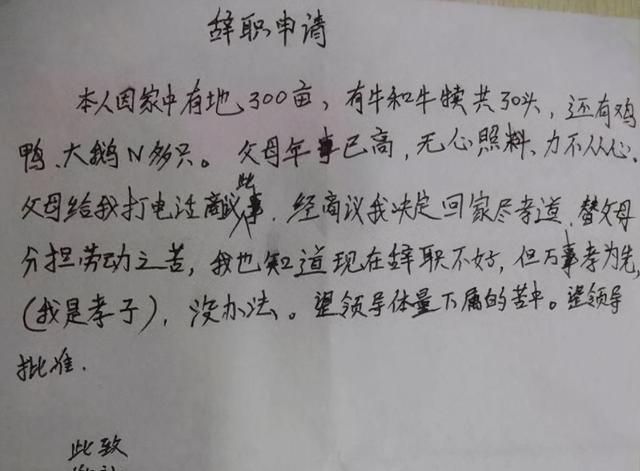 辞职申请
本人因家中有地300亩，有牛和牛犊共30头，还有鸡
鸭、大鹅N多只。父母年事已高，无心照料、力不从心、
父母给我打电话商议此事，经商议我决定回家尽孝道、替父母
分担劳动之苦，我也知道现在辞职不好，但万事孝为先，
(我是孝子)，没办法。望领导体量下属的苦中。望领导
批准.
此致